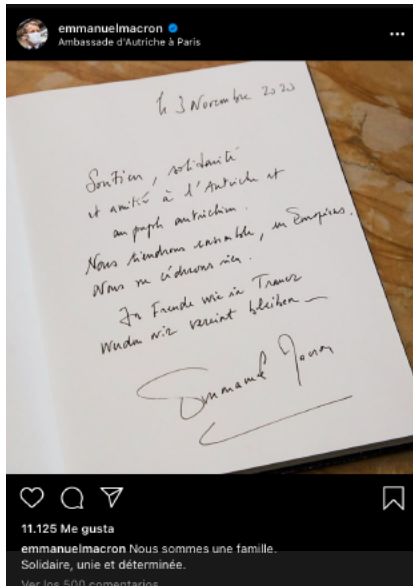 emmanuelmacron
Ambassade d'Autriche à Paris
le 3 Novembre 2020
Soutien, solidarité
et amitié à l'Autriche et
au peuple autrichien.
Nous tiendrons ensemble, en Européens.
Nous ne céderons rien.
In Freude wie in Trauer
werden wir vereint bleiben
Emmanuel Macron
11.125 Me gusta
emmanuelmacron Nous sommes une famille.
Solidaire, unie et déterminée.
Ver los 500 comentarios